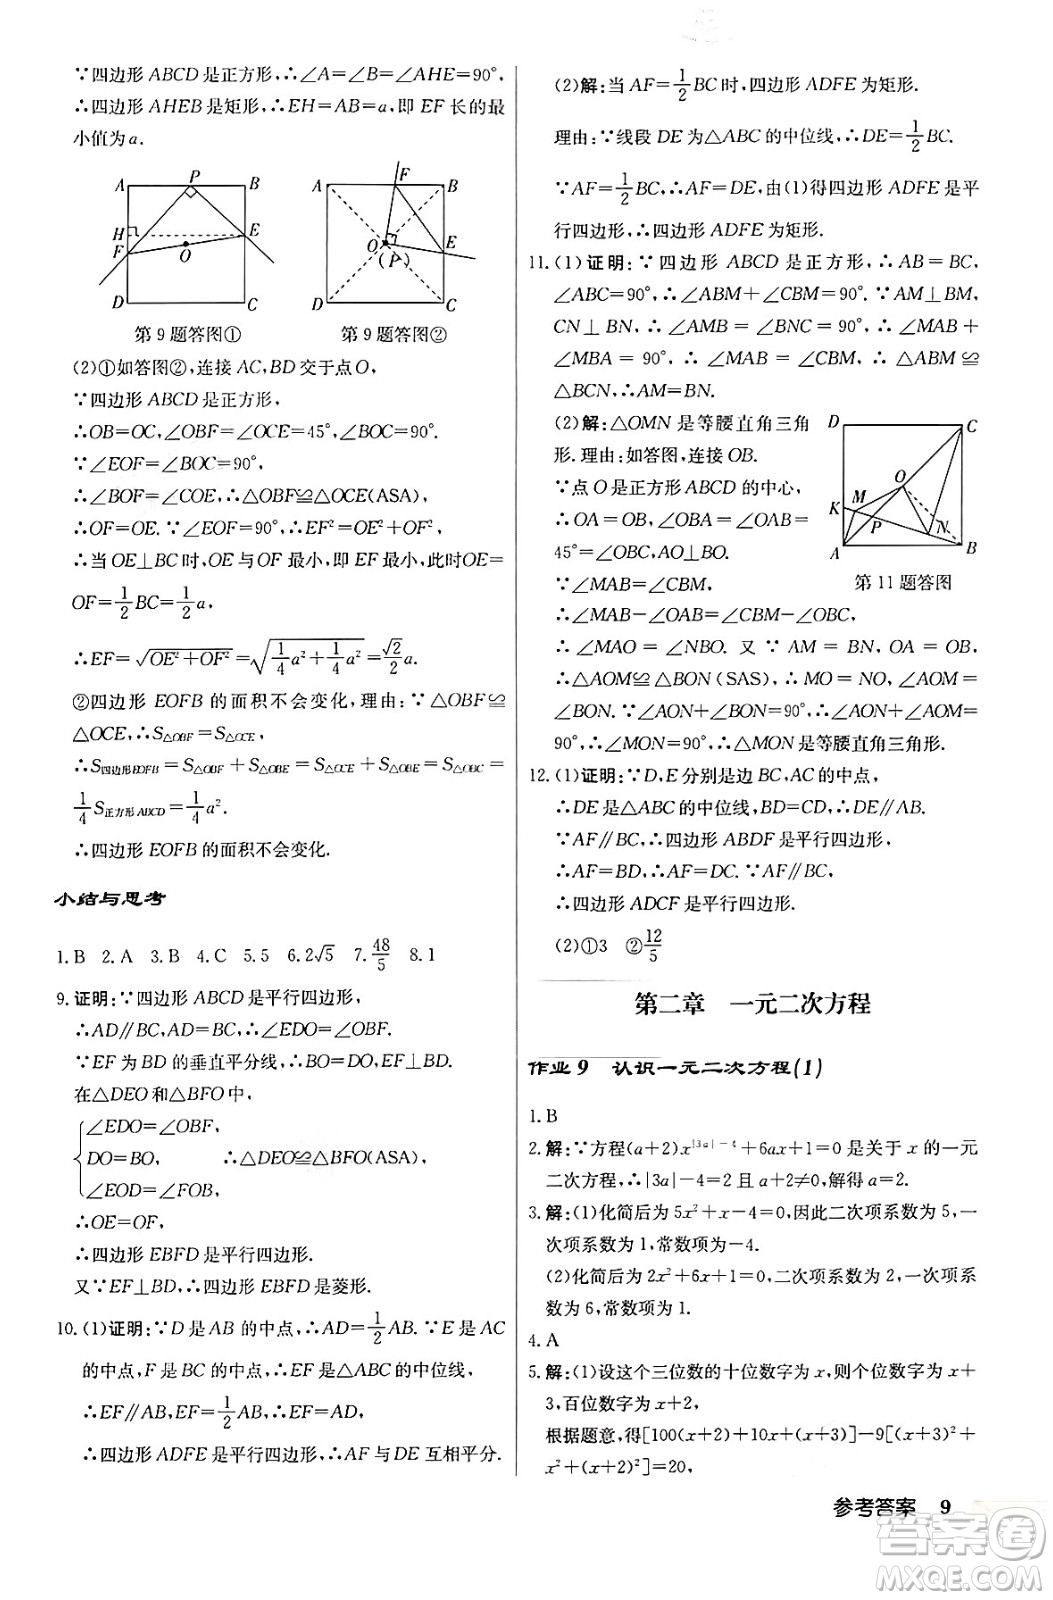 ∵四边形ABCD是正方形,∴∠A=∠B=∠AHE=90°,
∴四边形AHEB是矩形,∴EH=AB=a,即EF长的最
小值为a.
A P B
H E
F O
D C
第9题答图①
A F B
O E
(P)
D C
第9题答图②
(2)①如答图②,连接AC,BD交于点O,
∵四边形ABCD是正方形,
∴OB=OC,∠OBF=∠OCE=45°,∠BOC=90°.
∵∠EOF=∠BOC=90°,
∴∠BOF=∠COE,∴△OBF≌△OCE(ASA),
∴OF=OE.∵∠EOF=90°,∴EF²=OE²+OF²,
∴当OE⊥BC时,OE与OF最小,即EF最小,此时OE=
OF=1/2BC=1/2a,
∴EF=√(OE²+OF²)=√(1/4a²+1/4a²)=√2/2a.
②四边形EOFB的面积不会变化.理由:∵△OBF≌
△OCE,∴S△OBF=S△OCE,
∴S四边形EOFB=S△OBF+S△OBE=S△OCE+S△OBE=S△OBC=
1/4S正方形ABCD=1/4a².
∴四边形EOFB的面积不会变化.
小结与思考
1.B 2.A 3.B 4.C 5.5 6.2√5 7.48/5 8.1
9.证明:∵四边形ABCD是平行四边形,
∴AD∥BC,AD=BC,∴∠EDO=∠OBF.
∵EF为BD的垂直平分线,∴BO=DO,EF⊥BD.
在△DEO和△BFO中,
∠EDO=∠OBF,
DO=BO, ∴△DEO≌△BFO(ASA),
∠EOD=∠FOB,
∴OE=OF,
∴四边形EBFD是平行四边形.
又∵EF⊥BD,∴四边形EBFD是菱形.
10.(1)证明:∵D是AB的中点,∴AD=1/2AB.∵E是AC
的中点,F是BC的中点,∴EF是△ABC的中位线,
∴EF∥AB,EF=1/2AB,∴EF=AD,
∴四边形ADFE是平行四边形,∴AF与DE互相平分.
(2)解:当AF=1/2BC时,四边形ADFE为矩形.
理由:∵线段DE为△ABC的中位线,∴DE=1/2BC.
∵AF=1/2BC,∴AF=DE,由(1)得四边形ADFE是平
行四边形,∴四边形ADFE为矩形.
11.(1)证明:∵四边形ABCD是正方形,∴AB=BC,
∠ABC=90°,∴∠ABM+∠CBM=90°.∵AM⊥BM,
CN⊥BN,∴∠AMB=∠BNC=90°,∴∠MAB+
∠MBA=90°,∴∠MAB=∠CBM,∴△ABM≌
△BCN,∴AM=BN.
(2)解:△OMN是等腰直角三角
形.理由:如答图,连接OB.
∵点O是正方形ABCD的中心,
∴OA=OB,∠OBA=∠OAB=
45°=∠OBC,AO⊥BO.
∵∠MAB=∠CBM,
D C
O
M
K P N
A B
第11题答图
∴∠MAB-∠OAB=∠CBM-∠OBC,
∴∠MAO=∠NBO.又∵AM=BN,OA=OB,
∴△AOM≌△BON(SAS),∴MO=NO,∠AOM=
∠BON.∵∠AON+∠BON=90°,∴∠AON+∠AOM=
90°,∴∠MON=90°,∴△MON是等腰直角三角形.
12.(1)证明:∵D,E分别是边BC,AC的中点,
∴DE是△ABC的中位线,BD=CD,∴DE∥AB.
∵AF∥BC,∴四边形ABDF是平行四边形,
∴AF=BD,∴AF=DC.∵AF∥BC,
∴四边形ADCF是平行四边形.
(2)①3 ②12/5
第二章 一元二次方程
作业9 认识一元二次方程(1)
1.B
2.解:∵方程(a+2)x^(|3a|-4)+6ax+1=0是关于x的一元
二次方程,∴|3a|-4=2且a+2≠0,解得a=2.
3.解:(1)化简后为5x²+x-4=0,因此二次项系数为5,一
次项系数为1,常数项为-4.
(2)化简后为2x²+6x+1=0,二次项系数为2,一次项系
数为6,常数项为1.
4.A
5.解:(1)设这个三位数的十位数字为x,则个位数字为x+
3,百位数字为x+2,
根据题意,得[100(x+2)+10x+(x+3)]-9[(x+3)²+
x²+(x+2)²]=20,
参考答案 9
答案圈
MXQE.COM